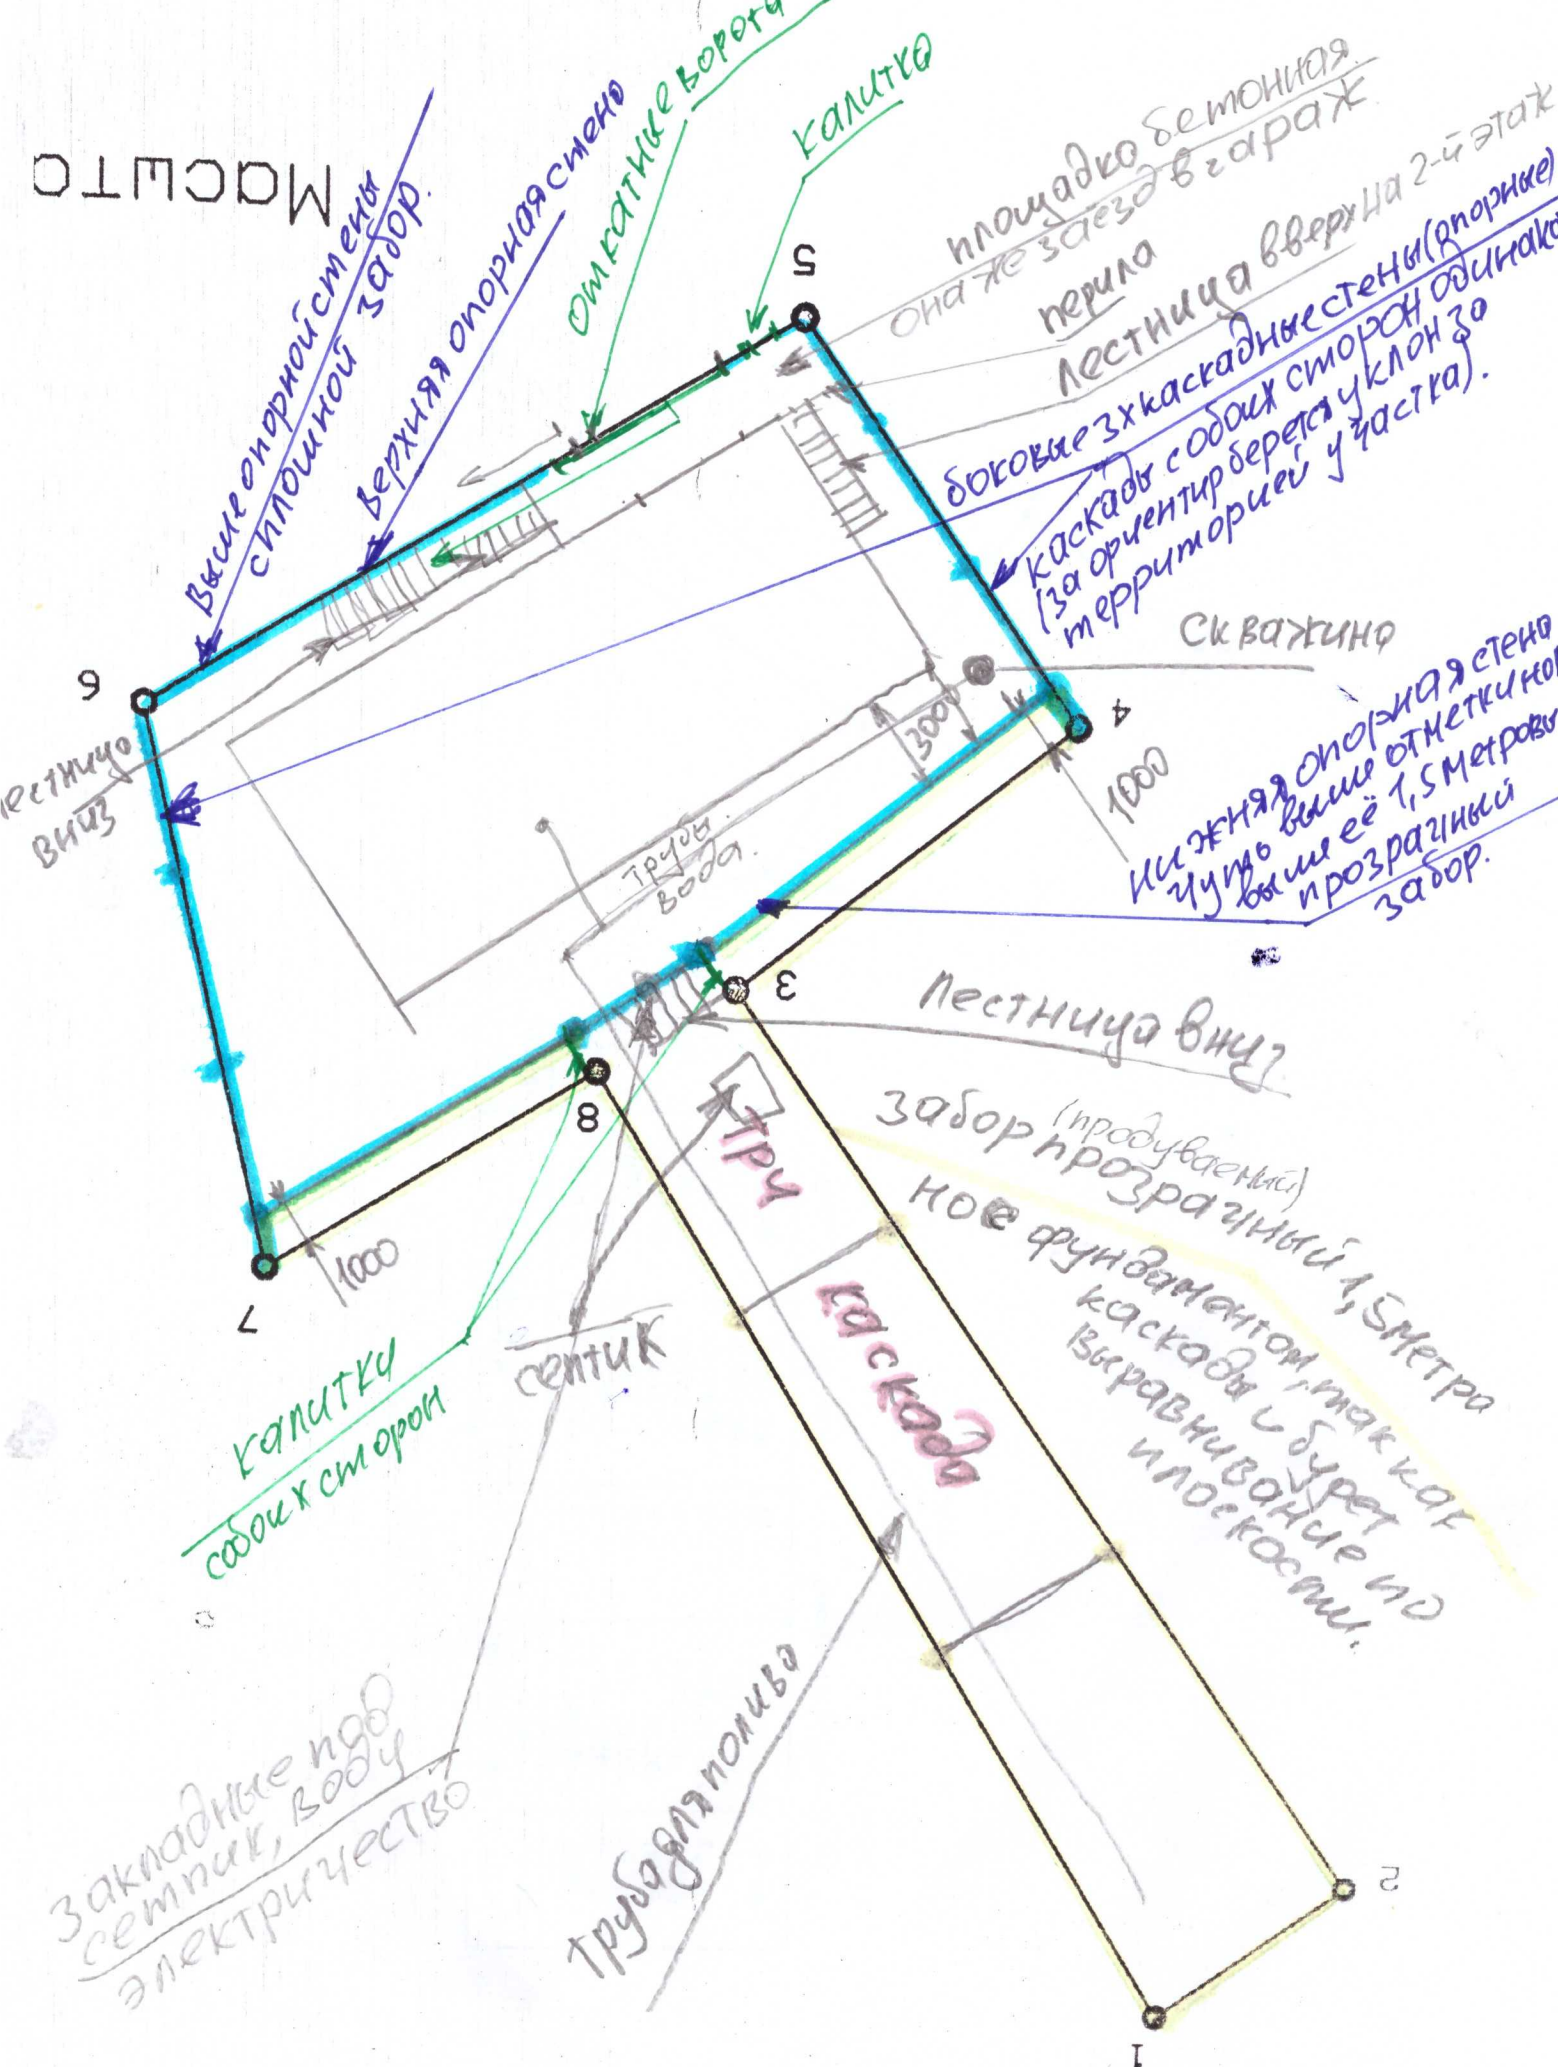 Масшта
выше опорной стены
сплошной забор.
верхняя опорная стена
откатные ворота
калитка
площадка бетонная
она же заезд в гараж
перила
лестница вверх на 2-й этаж
боковые 3х каскадные стены (опорные)
каскады с обоих сторон одинако
(за ориентир берётся уклон за
территорией участка).
скважина
нижняя опорная стена
чуть выше отметки
выше её 1,5 метровы
прозрачный
забор.
5
6
4
3
8
7
2
1
3000
1000
1000
естница
вниз
трубы
вода.
Лестница вниз
забор прозрачный 1,5 метра
(продуваемый)
но с фундаментом, так как
каскады и будет
выравнивание по
плоскости.
Три
каскада
септик
калитки
с обоих сторон
закладные под
септик, воду
электричество
труба для полива